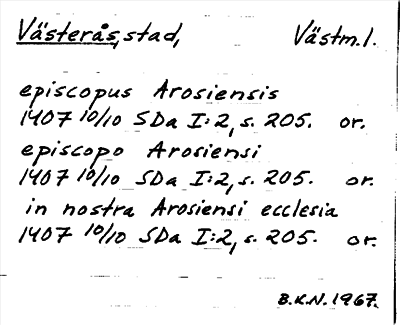 Västerås, stad, Västm. l.
episcopus Arosiensis
1407 10/10 SDa I:2, s. 205. or.
episcopo Arosiensi
1407 10/10 SDa I:2, s. 205. or.
in nostra Arosiensi ecclesia
1407 10/10 SDa I:2, s. 205. or.
B.K.N. 1967.